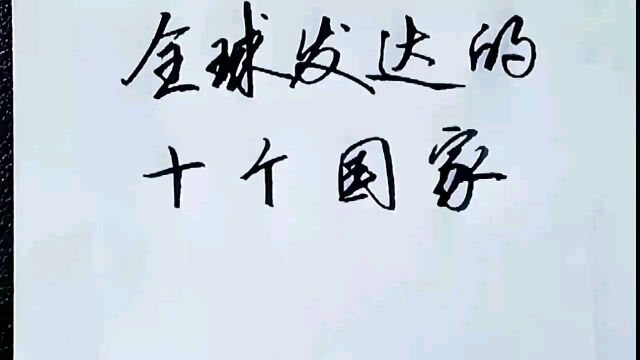 全球发达的
十个国家